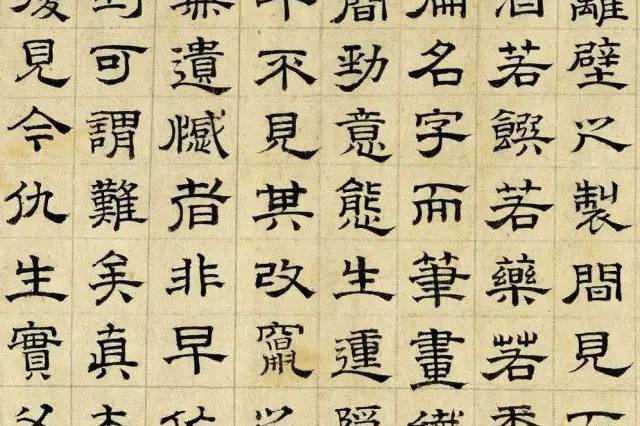 離壁之製間見
若饌若藥若香
名字而筆畫纖
間勁意態生運隱
不見其改竄之
無遺憾者非早
可謂難矣真本
後見今仇生實父